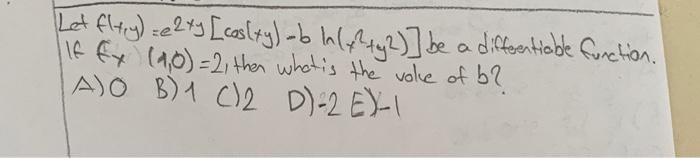 Let f(x,y) =e^2xy [cos(xy) -b ln(x²+y²)] be a differentiable function.
If fx (1,0) =2, then what is the value of b?
A) 0 B) 1 C) 2 D) -2 E) -1